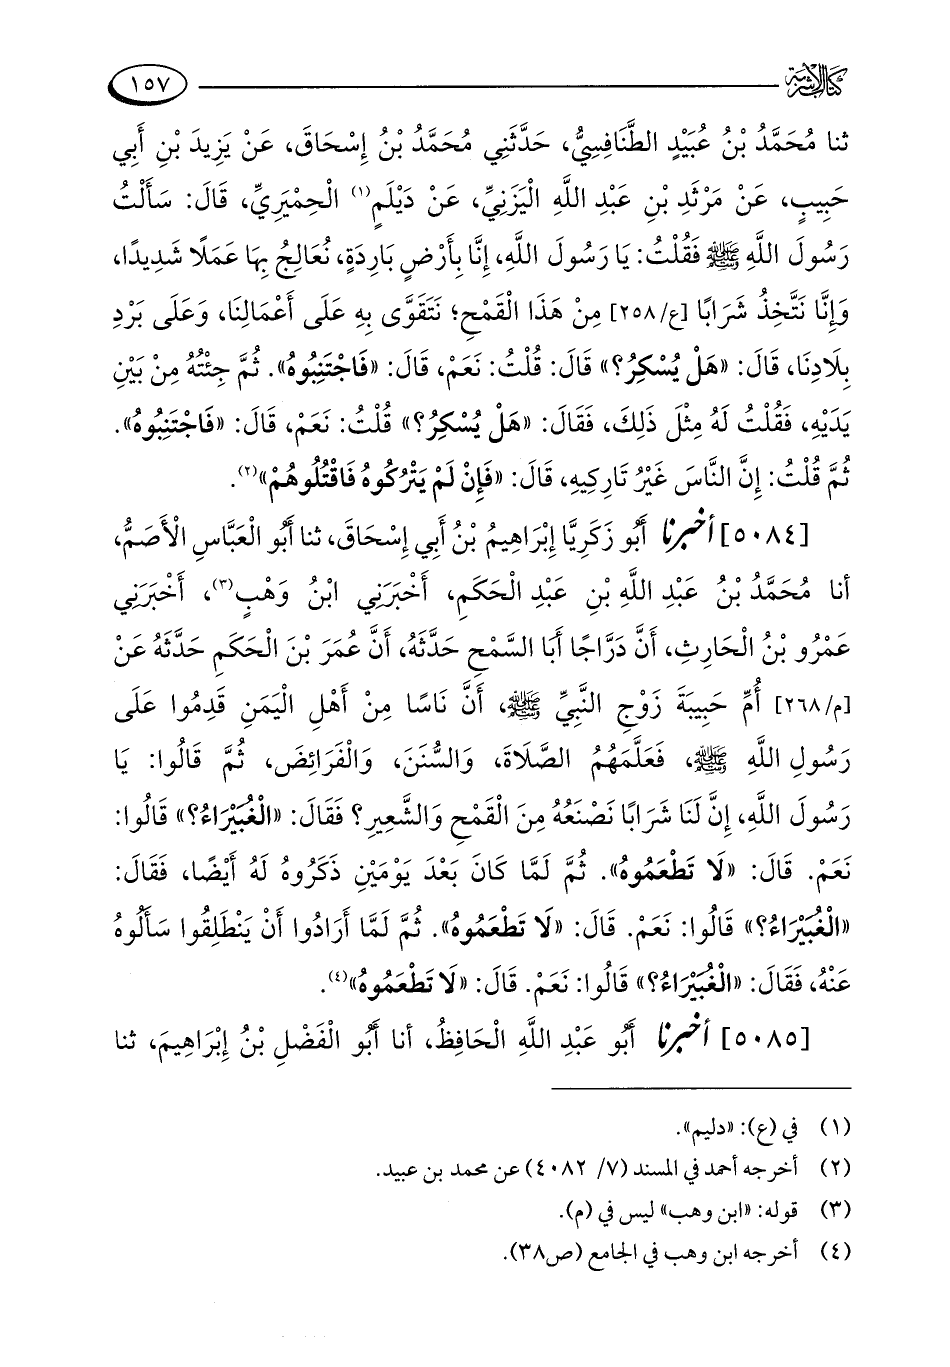 كتاب الأشربة
١٥٧
ثنا مُحَمَّدُ بْنُ عُبَيْدٍ الطَّنَافِسِيُّ، حَدَّثَنِي مُحَمَّدُ بْنُ إِسْحَاقَ، عَنْ يَزِيدَ بْنِ أَبِي
حَبِيبٍ، عَنْ مَرْثَدِ بْنِ عَبْدِ اللَّهِ الْيَزَنِيِّ، عَنْ دَيْلَمٍ(١) الْحِمْيَرِيِّ، قَالَ: سَأَلْتُ
رَسُولَ اللَّهِ ﷺ فَقُلْتُ: يَا رَسُولَ اللَّهِ، إِنَّا بِأَرْضٍ بَارِدَةٍ، نُعَالِجُ بِهَا عَمَلًا شَدِيدًا،
وَإِنَّا نَتَّخِذُ شَرَابًا [ع/٢٥٨] مِنْ هَذَا الْقَمْحِ؛ نَتَقَوَّى بِهِ عَلَى أَعْمَالِنَا، وَعَلَى بَرْدِ
بِلَادِنَا، قَالَ: «هَلْ يُسْكِرُ؟» قَالَ: قُلْتُ: نَعَمْ، قَالَ: «فَاجْتَنِبُوهُ». ثُمَّ جِئْتُهُ مِنْ بَيْنِ
يَدَيْهِ، فَقُلْتُ لَهُ مِثْلَ ذَلِكَ، فَقَالَ: «هَلْ يُسْكِرُ؟» قُلْتُ: نَعَمْ، قَالَ: «فَاجْتَنِبُوهُ».
ثُمَّ قُلْتُ: إِنَّ النَّاسَ غَيْرُ تَارِكِيهِ، قَالَ: «فَإِنْ لَمْ يَتْرُكُوهُ فَاقْتُلُوهُمْ»(٢).
[٥٠٨٤] أخبرنا أَبُو زَكَرِيَّا إِبْرَاهِيمُ بْنُ أَبِي إِسْحَاقَ، ثنا أَبُو الْعَبَّاسِ الْأَصَمُّ،
أنا مُحَمَّدُ بْنُ عَبْدِ اللَّهِ بْنِ عَبْدِ الْحَكَمِ، أَخْبَرَنِي ابْنُ وَهْبٍ(٣)، أَخْبَرَنِي
عَمْرُو بْنُ الْحَارِثِ، أَنَّ دَرَّاجًا أَبَا السَّمْحِ حَدَّثَهُ، أَنَّ عُمَرَ بْنَ الْحَكَمِ حَدَّثَهُ عَنْ
[م/٢٦٨] أُمِّ حَبِيبَةَ زَوْجِ النَّبِيِّ ﷺ، أَنَّ نَاسًا مِنْ أَهْلِ الْيَمَنِ قَدِمُوا عَلَى
رَسُولِ اللَّهِ ﷺ، فَعَلَّمَهُمُ الصَّلَاةَ، وَالسُّنَنَ، وَالْفَرَائِضَ، ثُمَّ قَالُوا: يَا
رَسُولَ اللَّهِ، إِنَّ لَنَا شَرَابًا نَصْنَعُهُ مِنَ الْقَمْحِ وَالشَّعِيرِ؟ فَقَالَ: «الْغُبَيْرَاءُ؟» قَالُوا:
نَعَمْ. قَالَ: «لَا تَطْعَمُوهُ». ثُمَّ لَمَّا كَانَ بَعْدَ يَوْمَيْنِ ذَكَرُوهُ لَهُ أَيْضًا، فَقَالَ:
«الْغُبَيْرَاءُ؟» قَالُوا: نَعَمْ. قَالَ: «لَا تَطْعَمُوهُ». ثُمَّ لَمَّا أَرَادُوا أَنْ يَنْطَلِقُوا سَأَلُوهُ
عَنْهُ، فَقَالَ: «الْغُبَيْرَاءُ؟» قَالُوا: نَعَمْ. قَالَ: «لَا تَطْعَمُوهُ»(٤).
[٥٠٨٥] أخبرنا أَبُو عَبْدِ اللَّهِ الْحَافِظُ، أنا أَبُو الْفَضْلِ بْنُ إِبْرَاهِيمَ، ثنا
(١) في (ع): «دليم».
(٢) أخرجه أحمد في المسند (٧/ ٤٠٨٢) عن محمد بن عبيد.
(٣) قوله: «ابن وهب» ليس في (م).
(٤) أخرجه ابن وهب في الجامع (ص٣٨).